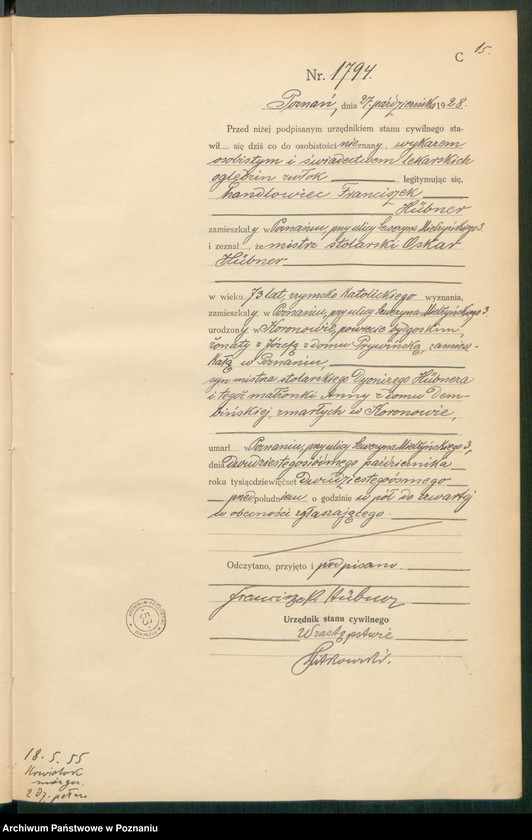 C 15.
Nr. 1794.
Poznań, dnia 27 października 1928.
Przed niżej podpisanym urzędnikiem stanu cywilnego sta-
wił się dziś co do osobistości nieznany, wykazem
osobistym i świadectwem lekarskich
oględzin zwłok legitymując się,
handlowiec Franciszek
Hübner
zamieszkały w Poznaniu, przy ulicy Seweryna Mielżyńskiego 3.
i zeznał, że mistrz stolarski Oskar
Hübner
w wieku 73 lat, rzymsko katolickiego wyznania,
zamieszkały w Poznaniu, przy ulicy Seweryna Mielżyńskiego 3.
urodzony w Koronowie, powiecie bydgoskim,
żonaty z Józefą z domu Prywińską, zamiesz-
kałą w Poznaniu,
syn mistrza stolarskiego Dyonizego Hübnera
i tegoż małżonki Anny z domu Dem-
bińskiej, zmarłych w Koronowie,
umarł w Poznaniu, przy ulicy Seweryna Mielżyńskiego 3,
dnia dwudziestegosiódmego października
roku tysiącdziewięćset dwudziestegoósmego
przedpołudniem o godzinie w pół do czwartej
w obecności zgłaszającego.
Odczytano, przyjęto i podpisano.
Franciszek Hübner
Urzędnik stanu cywilnego
W zastępstwie
ARCHIWUM PAŃSTWOWE
53
18. 5. 55
Archiwum Państwowe w Poznaniu